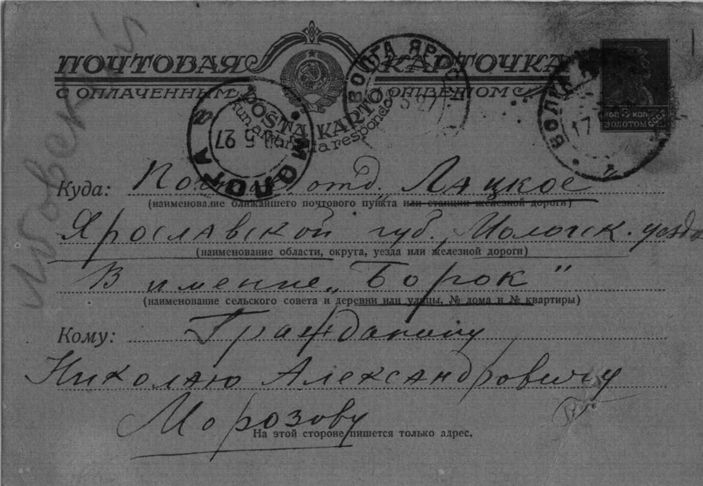 ПОЧТОВАЯ КАРТОЧКА
С ОПЛАЧЕННЫМ ОТВЕТОМ
POŜTA KARTO
ВОЛГА ЯРОСЛ
ВОЛГА
МОЛОГА
5 27
17
ЗОЛОТОМ
Куда: Почт. отд. Лацкое
(наименование ближайшего почтового пункта или станции железной дороги)
Ярославской губ., Мологск. уезда
(наименование области, округа, уезда или железной дороги)
В имение „Борок"
(наименование сельского совета и деревни или улицы, № дома и № квартиры)
Кому: Гражданину
Николаю Александровичу
Морозову
На этой стороне пишется только адрес.